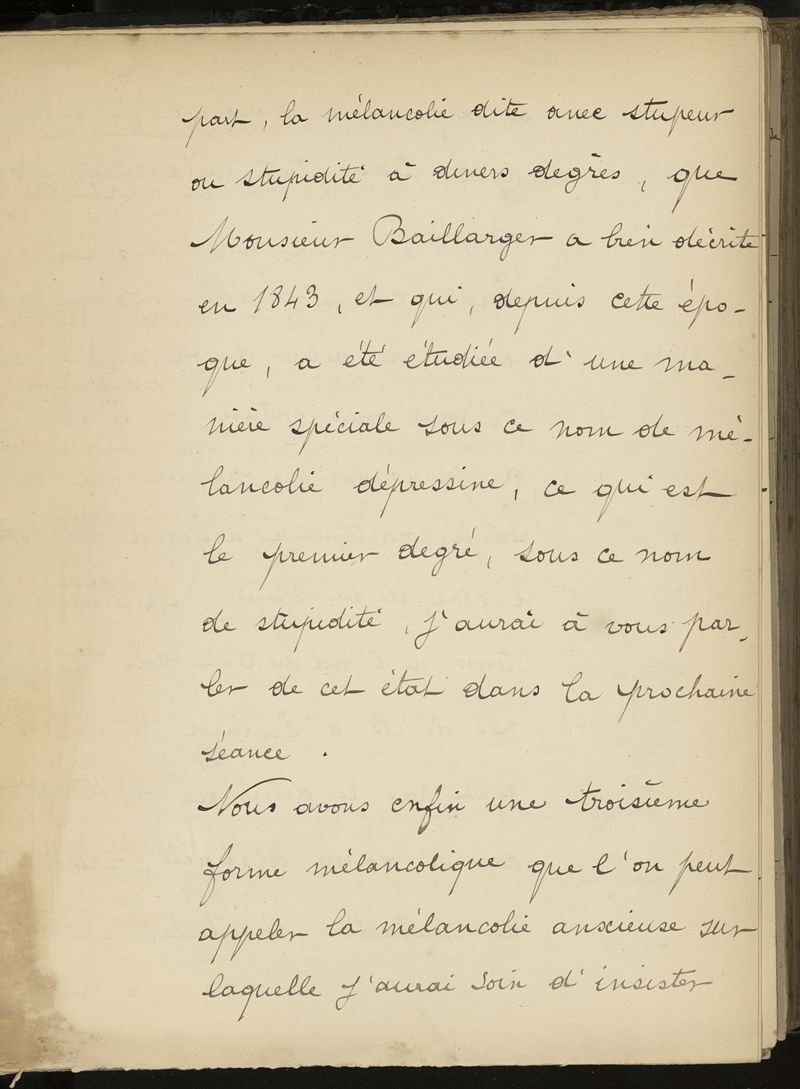 part, la mélancolie dite avec stupeur
ou stupidité à divers degrès, que
Monsieur Baillarger a bien décrite
en 1843, et qui, depuis cette épo-
que, a été étudiée d'une ma-
nière spéciale sous ce nom de mé-
lancolie dépressive, ce qui est
le premier degré, sous ce nom
de stupidité, j'aurai à vous par-
ler de cet état dans la prochaine
séance.
Nous avons enfin une troisième
forme mélancolique que l'on peut
appeler la mélancolie anxieuse sur
laquelle j'aurai soin d'insister